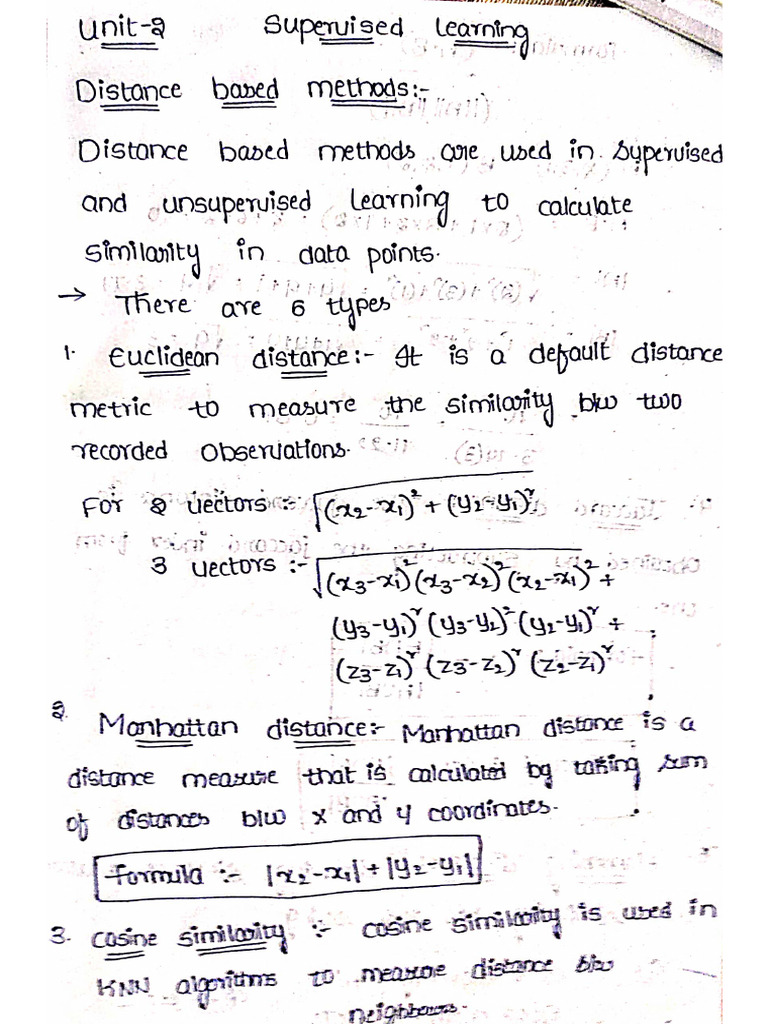 Unit-2 Supervised Learning
Distance based methods:-
Distance based methods are used in supervised
and unsupervised Learning to calculate
similarity in data points.
→ There are 6 types
1. Euclidean distance:- It is a default distance
metric to measure the similarity b/w two
recorded observations.
For 2 vectors :- √(x₂-x₁)² + (y₂-y₁)²
3 vectors :- √(x₃-x₁)² (x₃-x₂)² (x₂-x₁)² +
(y₃-y₁)² (y₃-y₂)² (y₂-y₁)² +
(z₃-z₁)² (z₃-z₂)² (z₂-z₁)²
2. Manhattan distance:- Manhattan distance is a
distance measure that is calculated by taking sum
of distances b/w x and y coordinates.
Formula :- |x₂-x₁| + |y₂-y₁|
3. Cosine similarity :- Cosine similarity is used in
KNN algorithms to measure distance b/w
neighbours.